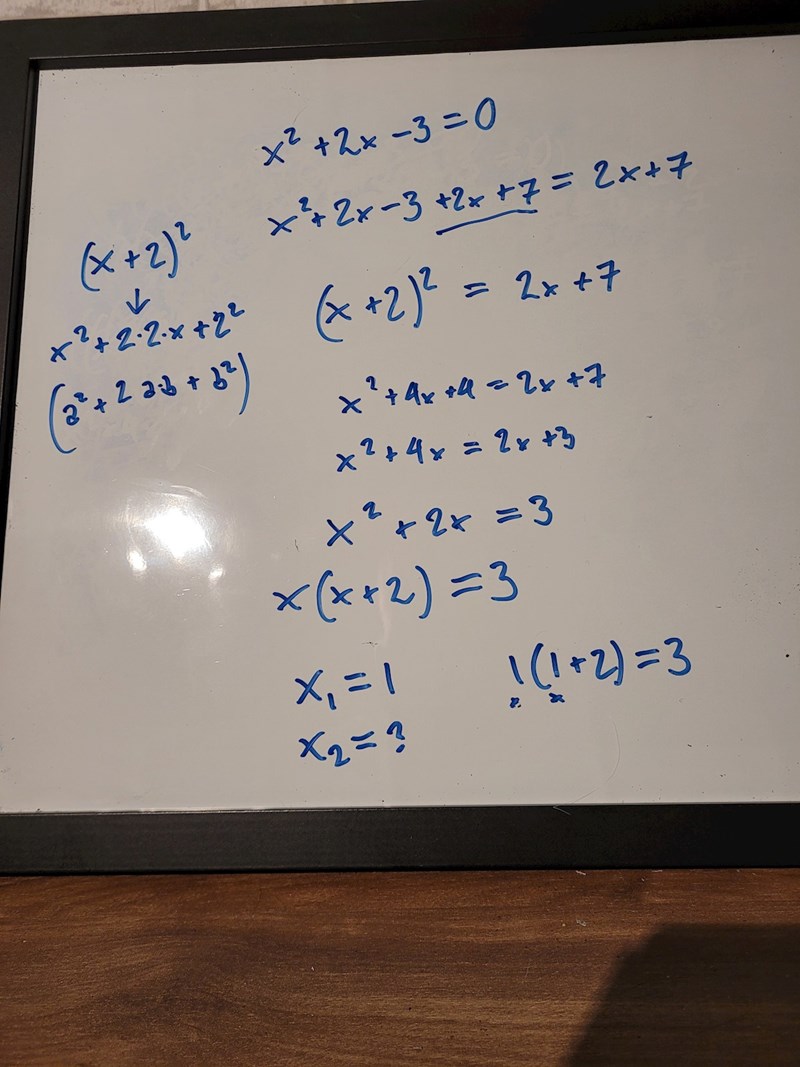 x² + 2x - 3 = 0
x² + 2x - 3 + 2x + 7 = 2x + 7
(x + 2)²
↓
x² + 2·2·x + 2²
(a² + 2 a·b + b²)
(x + 2)² = 2x + 7
x² + 4x + 4 = 2x + 7
x² + 4x = 2x + 3
x² + 2x = 3
x(x + 2) = 3
x₁ = 1
1(1 + 2) = 3
x x
x₂ = ?